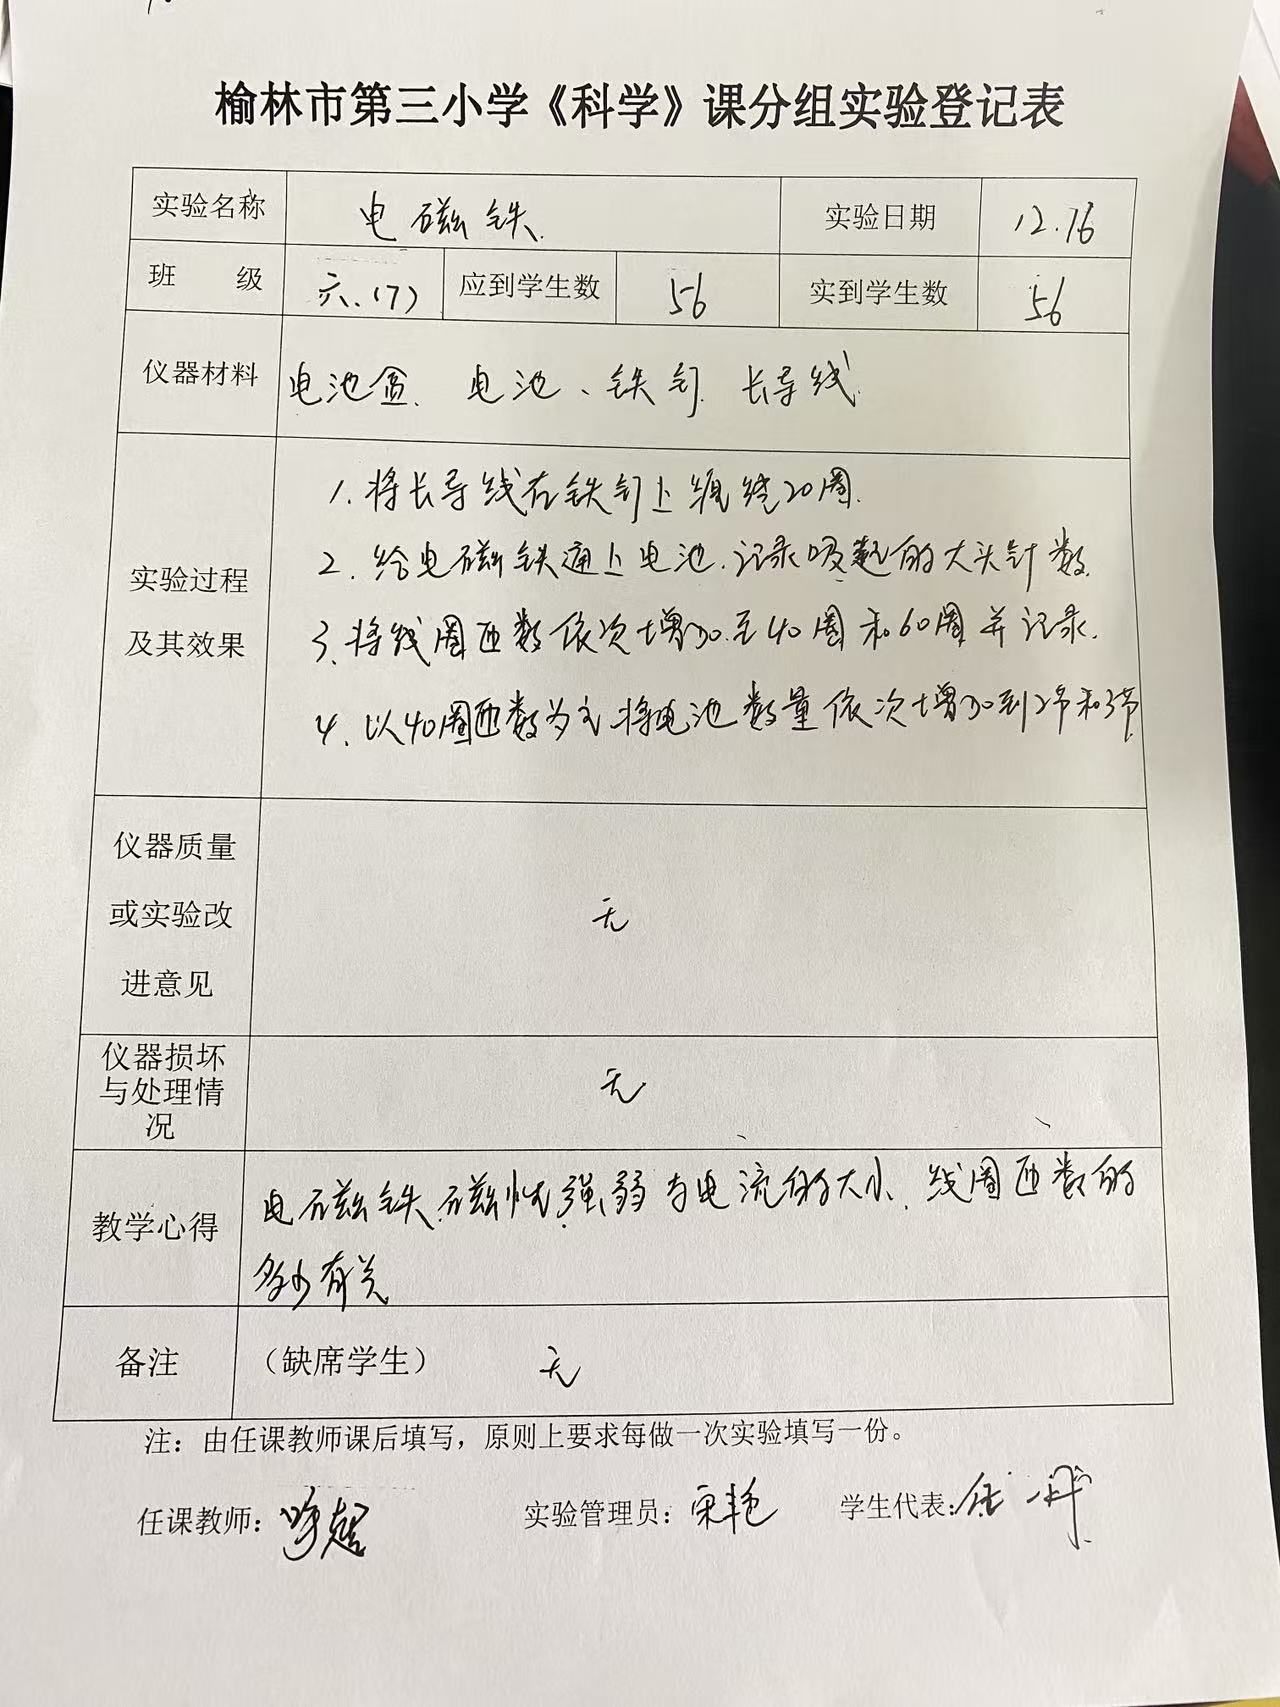 榆林市第三小学《科学》课分组实验登记表
实验名称 电磁铁. 实验日期 12.16
班 级 六.(7) 应到学生数 56 实到学生数 56
仪器材料 电池盒、电池、铁钉、长导线.
实验过程
及其效果
1. 将长导线在铁钉上缠绕20圈.
2. 给电磁铁通上电池.记录吸起的大头针数.
3. 将线圈匝数依次增加至40圈和60圈并记录.
4. 以40圈匝数为主将电池数量依次增加到2节和3节.
仪器质量
或实验改
进意见
无
仪器损坏
与处理情
况
无
教学心得
电磁铁磁性强弱与电流的大小、线圈匝数的
多少有关
备注 （缺席学生） 无
注：由任课教师课后填写，原则上要求每做一次实验填写一份。
任课教师: 实验管理员: 宋艳 学生代表: 任